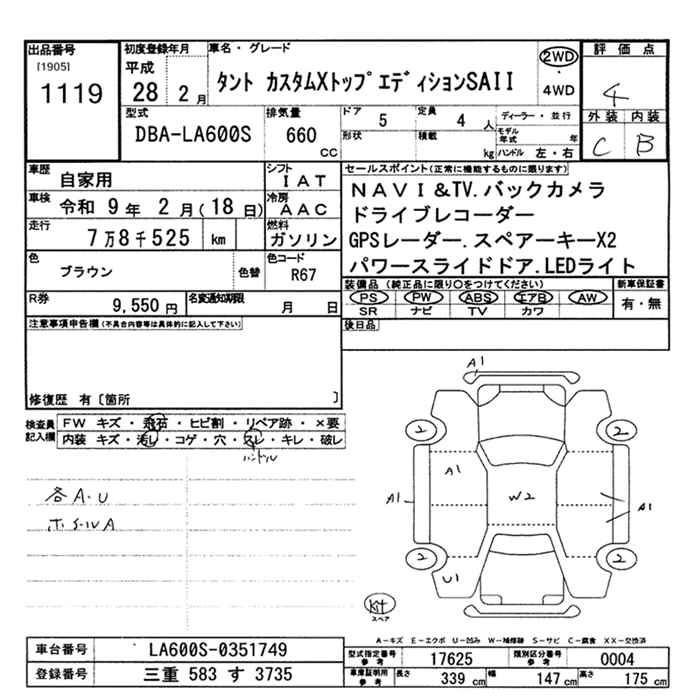 出品番号 初度登録年月 車名・グレード 評価点
[1905] 平成 2WD
1119 28 2月 タント カスタムXトップエディションSAII ・ 4WD 4
型式 排気量 ドア 5 定員 4人 ディーラー・並行 外装 内装
DBA-LA600S 660 CC 形状 積載 kg モデル年式 年 ハンドル 左・右 C B
車歴 自家用 シフト IAT セールスポイント(正常に機能するものに限ります)
車検 令和 9年 2月(18日) 冷房 AAC NAVI&TV.バックカメラ
ドライブレコーダー
走行 7万8千525 km 燃料 ガソリン GPSレーダー.スペアーキーX2
色 ブラウン 色替 色コード R67 パワースライドドア.LEDライト
R券 9,550円 名変通知期限 月 日 装備品(純正品に限り○をつけてください) 新車保証書
PS PW ABS エアB AW 有・無
SR ナビ TV カワ
注意事項申告欄(不具合内容等は具体的に記入して下さい) 後日品
修復歴 有〔箇所 〕
検査員記入欄 FW キズ・飛石・ヒビ割・リペア跡・×要
内装 キズ・汚レ・コゲ・穴・スレ・キレ・破レ
ハンドル
各A・U
A1
2 2
A1
A1 W2 A1
2 2
U1
Kit
スペア
A-キズ E-エクボ U-凹み W-補修跡 S-サビ C-腐食 XX-交換済
車台番号 LA600S-0351749 型式指定番号参考 17625 類別区分番号参考 0004
登録番号 三重 583 す 3735 車庫証明用参考 長さ 339 cm 幅 147 cm 高さ 175 cm